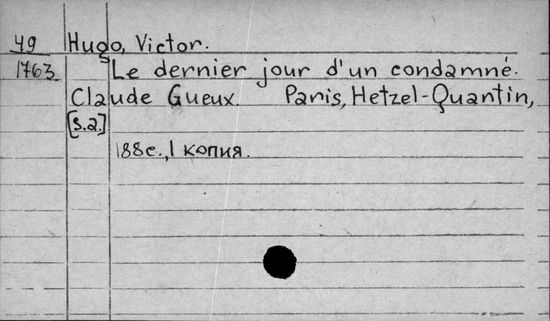 49 Hugo, Victor.
1763 Le dernier jour d'un condamné.
Claude Gueux. Paris, Hetzel-Quantin,
[s.a.]
188c., 1 копия.